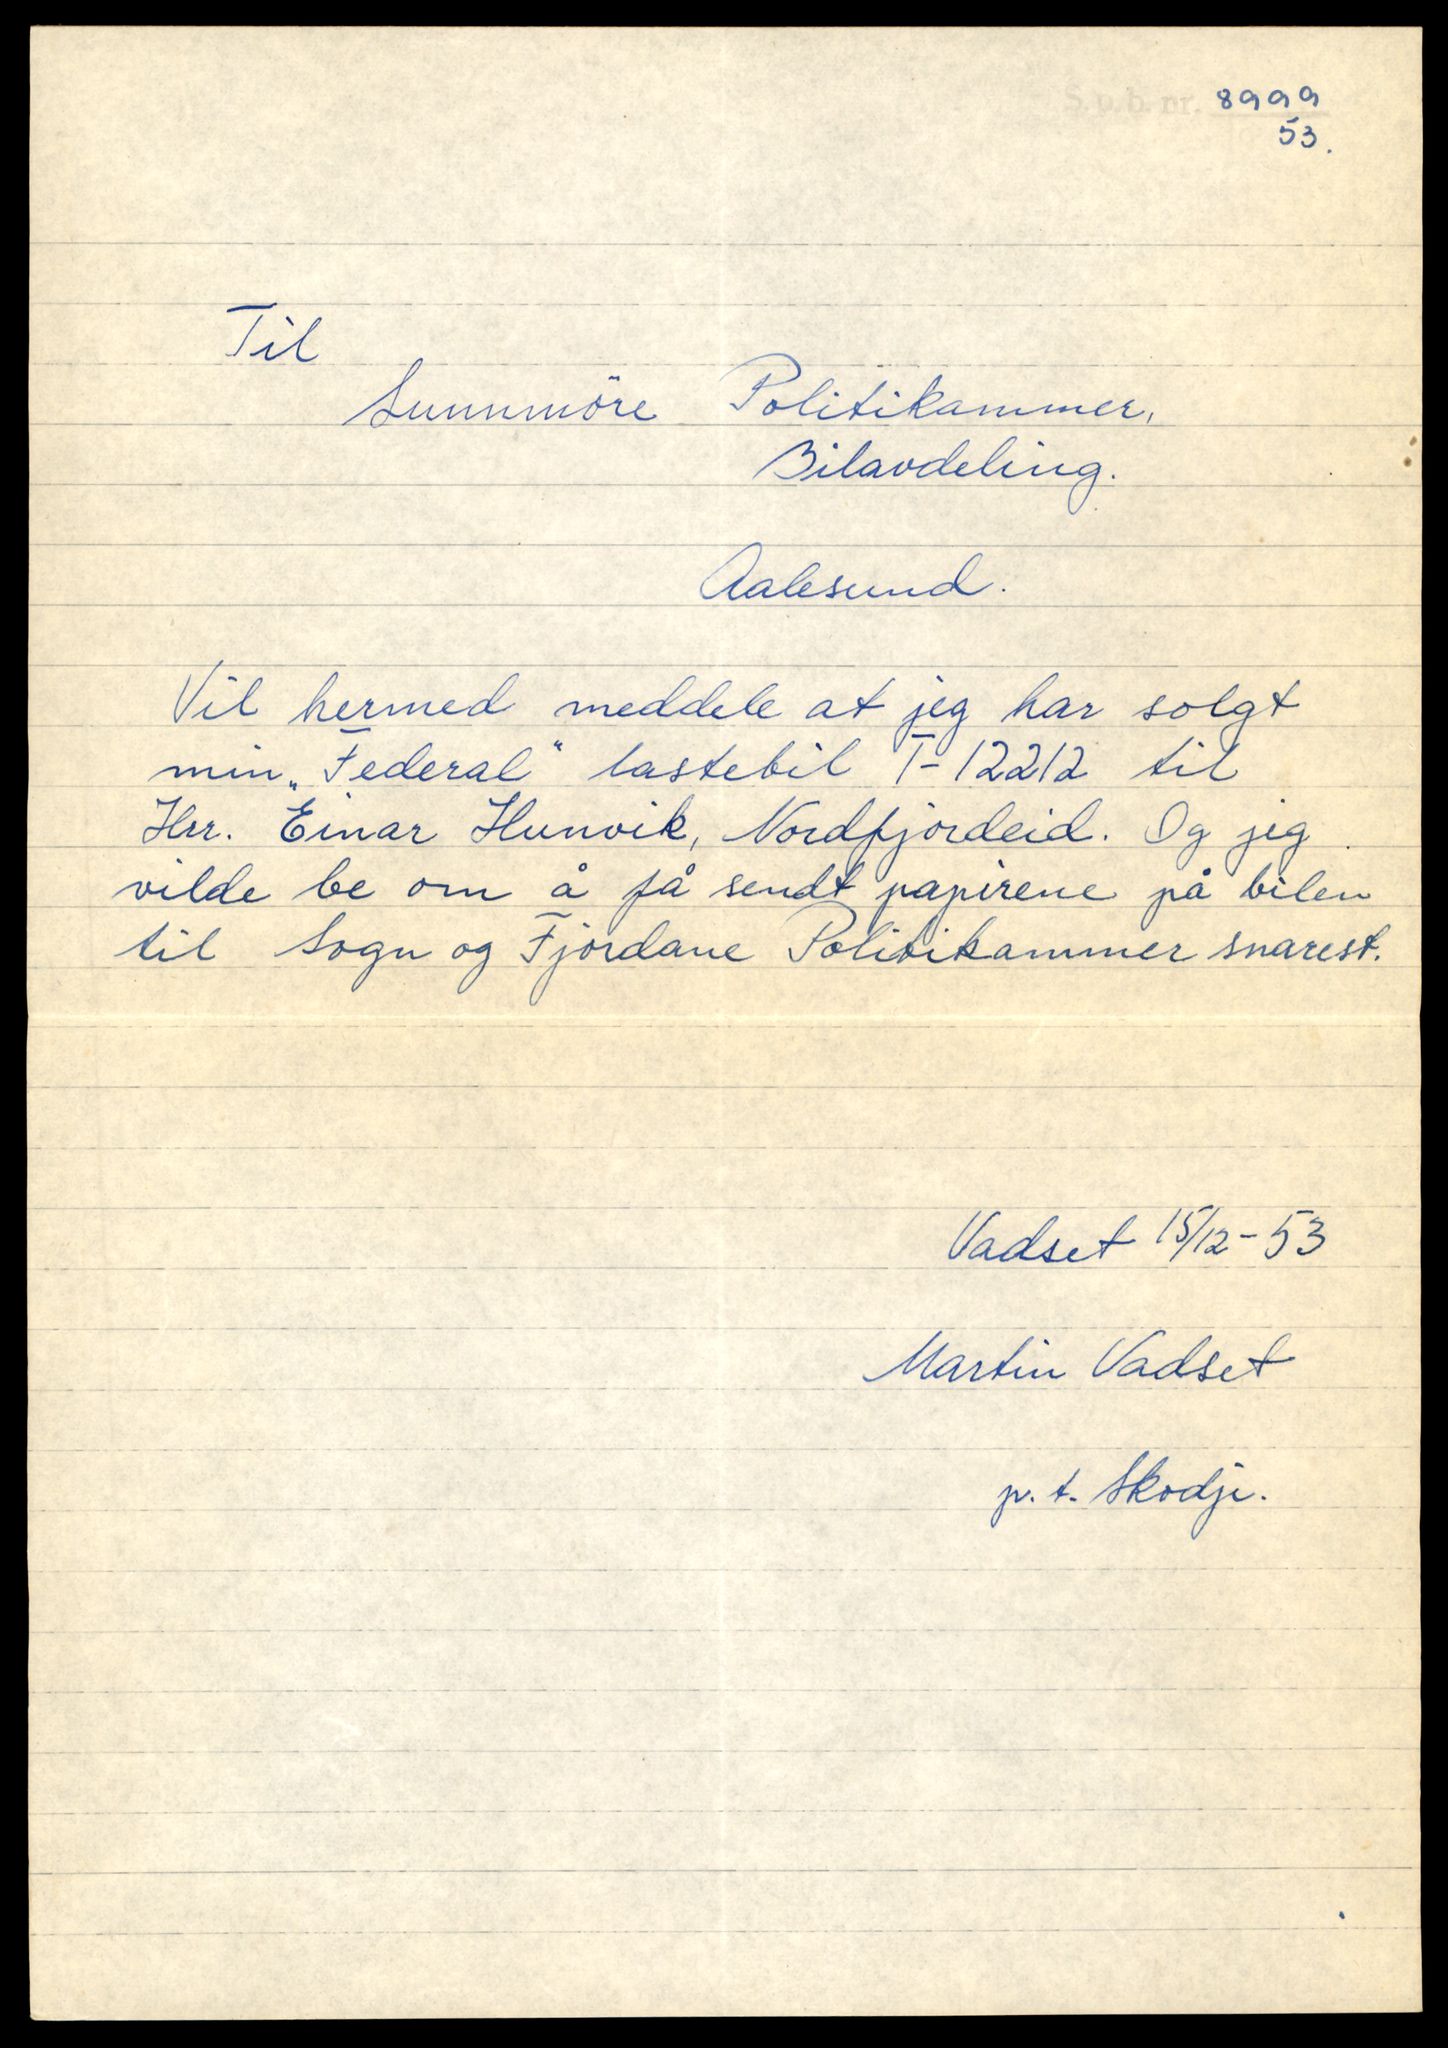 S.p.b. nr. 8999
53.
Til
Sunnmöre Politikammer,
Bilavdeling.
Aalesund.
Vil hermed meddele at jeg har solgt
min „Federal“ lastebil T-12212 til
Hrr. Einar Hunvik, Nordfjordeid. Og jeg
vilde be om å få sendt papirene på bilen
til Sogn og Fjordane Politikammer snarest.
Vadset 15/12-53
Martin Vadset
p. t. Skodje.